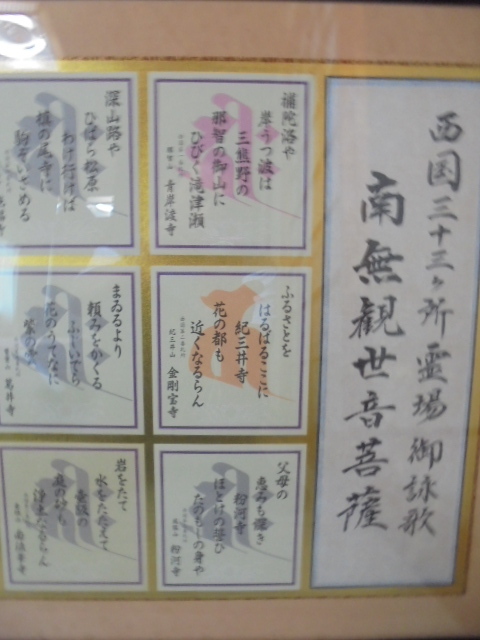 西国三十三ヶ所霊場御詠歌
南無観世音菩薩
補陀洛や
岸うつ波は
三熊野の
那智の御山に
ひびく滝津瀬
青岸渡寺
ふるさとを
はるばるここに
紀三井寺
花の都も
近くなるらん
紀三井山 金剛宝寺
父母の
恵みも深き
粉河寺
ほとけの誓ひ
たのもしの身や
粉河寺
深山路や
ひばら松原
わけ行けば
槇の尾寺に
駒ぞいさめる
まゐるより
頼みをかくる
ふじいでら
花のうてなに
紫の雲
葛井寺
岩をたて
水をたたえて
壺阪の
庭の砂も
浄土なるらん
南法華寺